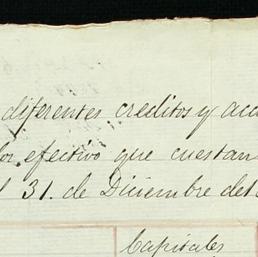 diferentes creditos y acc
lor efectivo que cuestan
l 31. de Diciembre del
Capitales